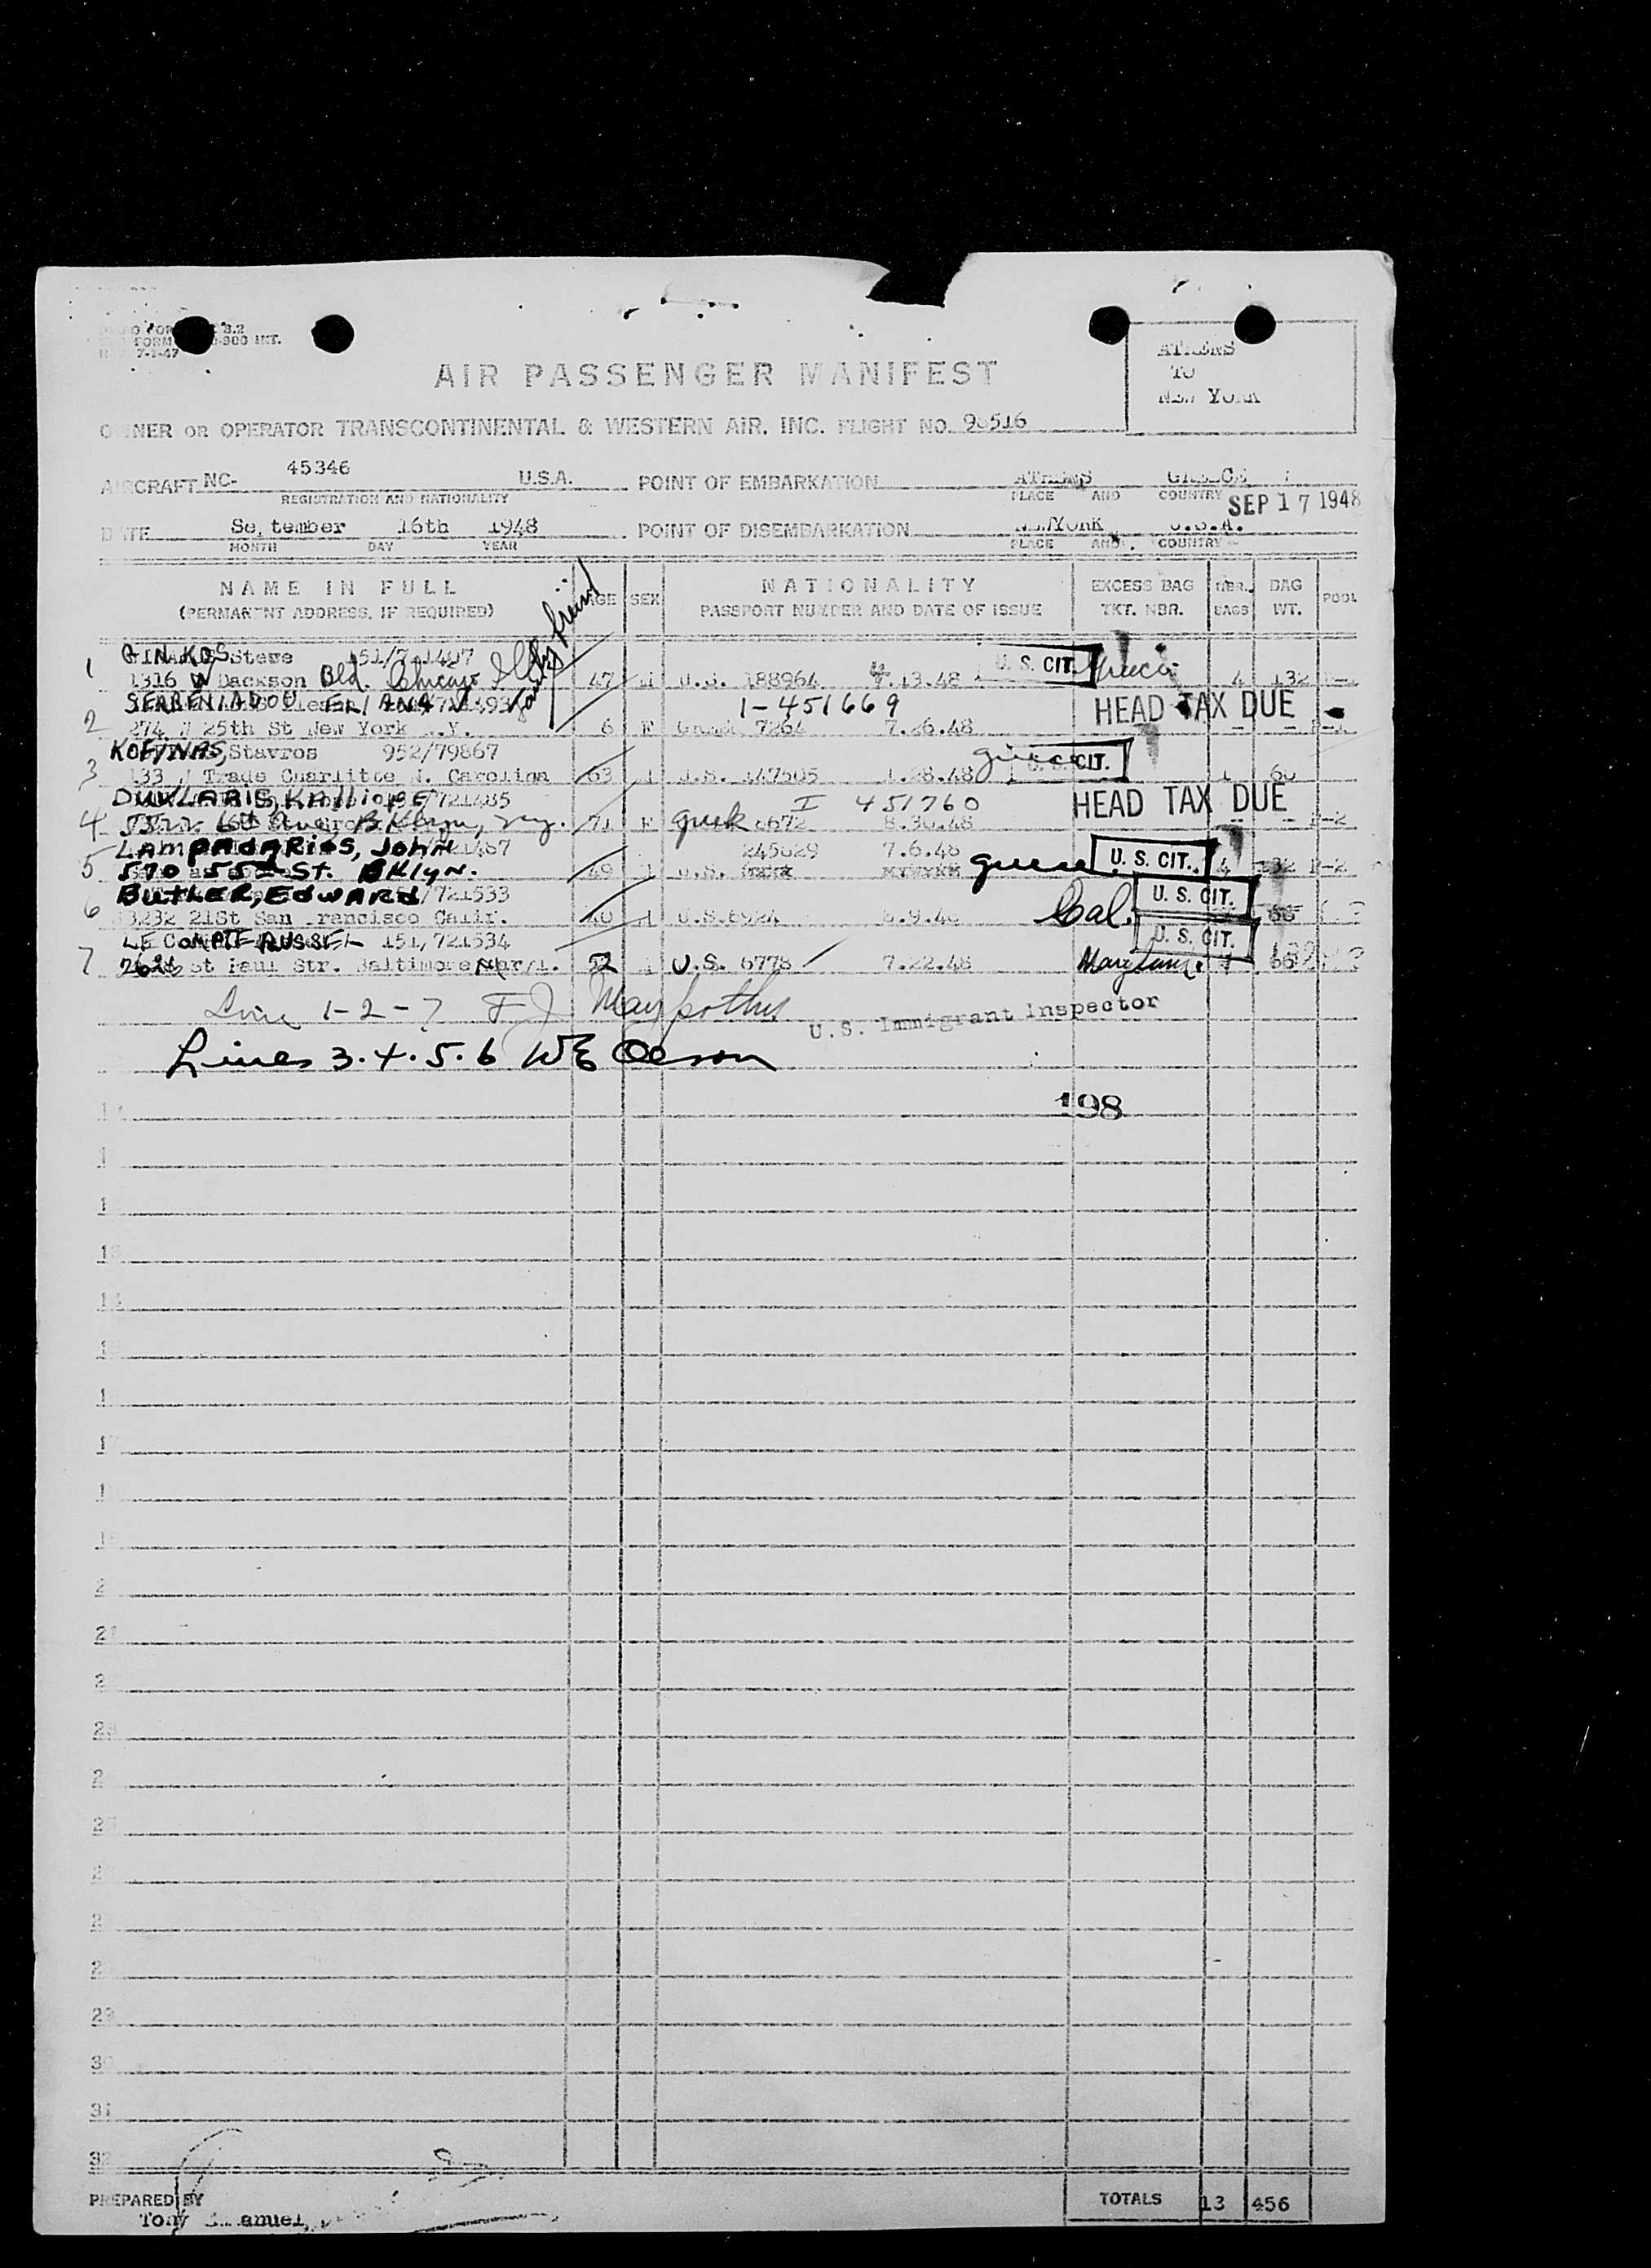 8.2
FORM -900 INT.
7-1-47
ATHENS
TO
NEW YORK
AIR PASSENGER MANIFEST
OWNER OR OPERATOR TRANSCONTINENTAL & WESTERN AIR. INC. FLIGHT NO. 90516
AIRCRAFT NC- 45346 U.S.A. POINT OF EMBARKATION ATHENS GREECE
REGISTRATION AND NATIONALITY PLACE AND COUNTRY
SEP 17 1948
DATE September 16th 1948 POINT OF DISEMBARKATION NEWYORK U.S.A.
MONTH DAY YEAR PLACE AND COUNTRY
NAME IN FULL AGE SEX NATIONALITY EXCESS BAG NBR. BAG POOL
(PERMANENT ADDRESS, IF REQUIRED) PASSPORT NUMBER AND DATE OF ISSUE TKT. NBR. BAGS WT.
1 GINKOS Steve
1316 W Dackson Bld. Chicago Ills 47 M U.S. 188964 .13.48 U. S. CIT. Greece 4 132
2 SERBENIADOU 1-451669 HEAD TAX DUE
274 W 25th St New York N.Y. 6 F Greek 7264 7.26.48 - -
3 KOFINAS, Stavros 952/79867
133 W Trade Charlitte N. Carolina 63 M U.S. 147505 1.28.48 Greece U. S. CIT. 1 60
4 DUKLARIS, KALLIOPE I 451760 HEAD TAX DUE
Ave. Bklyn, NY. 71 F Greek 6672 8.30.48 - -
5 LAMPADARIOS, JOHN 245029 7.6.48
570 55th ST. BKlyN. 49 M U.S. Greece U. S. CIT. 4 132 P-2
6 BUTLER, EDWARD /721533
3232 21St San Francisco Calif. 40 M U.S. .9.48 Cal. U. S. CIT. 66
7 LE COMPTE RUSSEL 151/721534
St Paul Str. Baltimore Mar/l. 52 M U.S. 6778 7.22.48 Maryland U. S. CIT. 66
Line 1-2-7 F J
U.S. Immigrant Inspector
Lines 3.4.5.6 WE Oleson
198
13
14
15
17
21
28
29
30
31
32
PREPARED BY
Tony Emanuel,
TOTALS 13 456